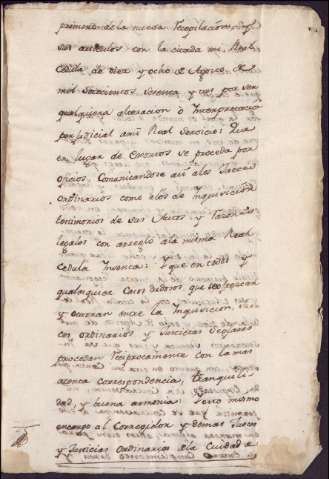 primero de la nueva Recopilacion, y
sus autedos con la citada mi Real
Cedula de diez y ocho de Agosto de
mil setecientos sesenta y tres por ser
qualquiera alteracion ó Interpretacion
perjudicial ami Real Servicio: Que
en lugar de Exortos se proceda por
oficios, comunicandose asi alos Jueces
ordinarios como alos de Inquisicion
testimonios de sus Autos y
legales con arreglo ala misma Real
Cedula Inserta: Y que en todos y
qualquier Casos dudosos que se ofrezcan
y ocurran entre la Inquisicion,
con ordinarios y Justicias Seglares
procedan reciprocamente con la mas
atenta correspondencia, tranquili-
dad, y buena armonia: Y esto mismo
encargo al Corregidor y demas Jueces
y Justicias ordinarias de la Ciudad de